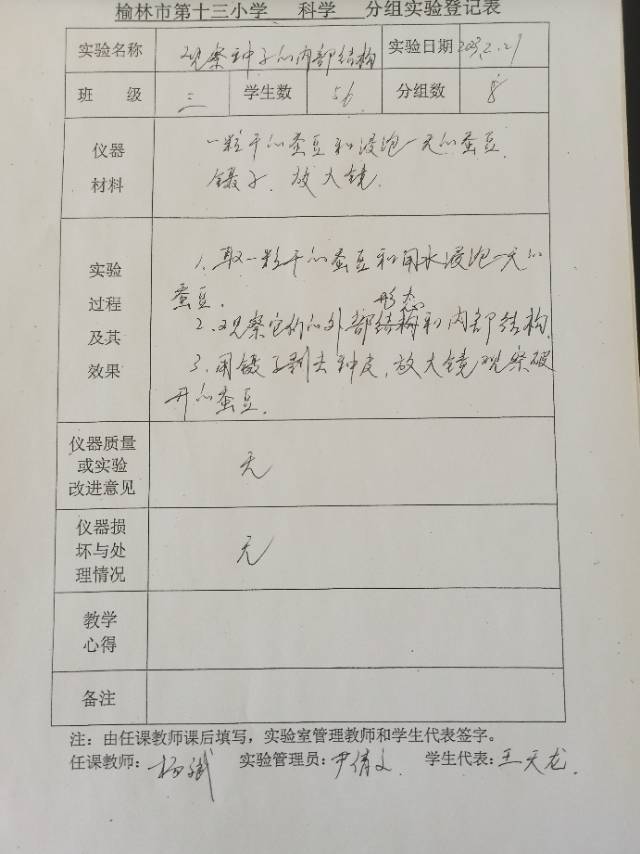 榆林市第十三小学 科学 分组实验登记表
实验名称 观察种子的内部结构 实验日期 2023.2.27
班 级 三 学生数 56 分组数 8
仪器材料
一粒干的蚕豆和浸泡一天的蚕豆.
镊子. 放大镜.
实验过程及其效果
1. 取一粒干的蚕豆和用水浸泡一天的
蚕豆.
形态
2. 观察它们的外部结构和内部结构.
3. 用镊子剥去种皮, 放大镜观察破
开的蚕豆.
仪器质量或实验改进意见 无
仪器损坏与处理情况 无
教学心得
备注
注:由任课教师课后填写,实验室管理教师和学生代表签字。
任课教师: 杨斌 实验管理员: 尹倩文. 学生代表: 王天龙.